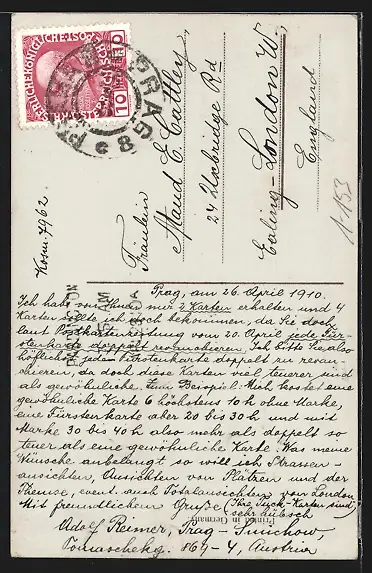 K.K. ÖSTERR.
10 10
PRAG
8
Fräulein
Maud E. Cattley,
24 Uxbridge Rd
Ealing-London W.
England
Kosm. 7462
1-153
Prag, am 26. April 1910.
Ich habe von Ihnen nur 2 Karten erhalten und 4
Karten sollte ich noch bekommen, da Sie doch
laut Postkartenordnung vom 20. April jede Für-
stenkarte doppelt revanchieren. Ich bitte Sie also
höflichst jede Fürstenkarte doppelt zu revan-
chieren, da doch diese Karten viel teuerer sind
als gewöhnliche. Zum Beispiel: Mich kostet eine
gewöhnliche Karte 6 höchstens 10 h ohne Marke,
eine Fürstenkarte aber 20 bis 30 h und mit
Marke 30 bis 40 h also mehr als doppelt so
teuer als eine gewöhnliche Karte. Was meine
Wünsche anbelangt so will ich Strassen-
ansichten, Ansichten von Plätzen und der
Themse, event. auch Totalansichten von London
Mit freundlichem Grusse (Ihre Tuck-Karten sind
sehr hübsch)
Printed in Germany
Adolf Reimer, Prag-Smichow,
869-4, Austria